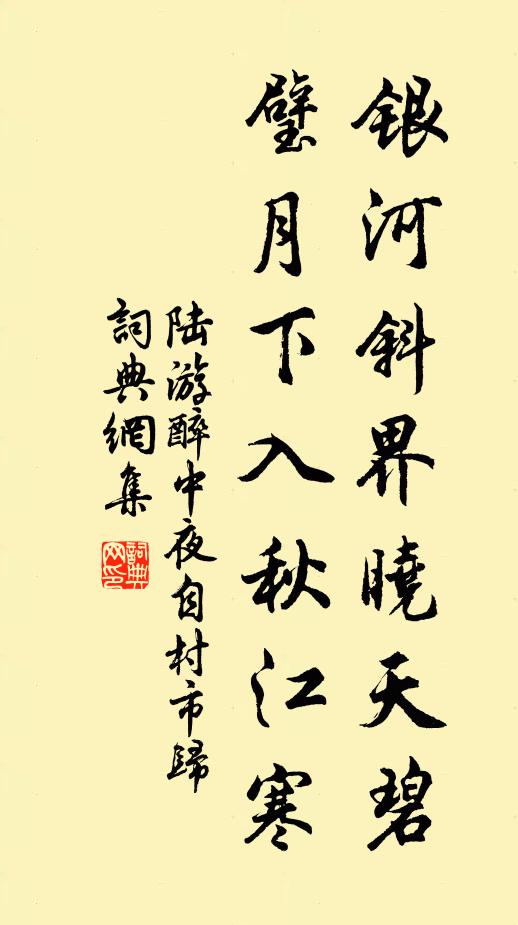 銀河斜界曉天碧
璧月下入秋江寒
陆游醉中夜自村市歸
詞典網集
詞典
网印